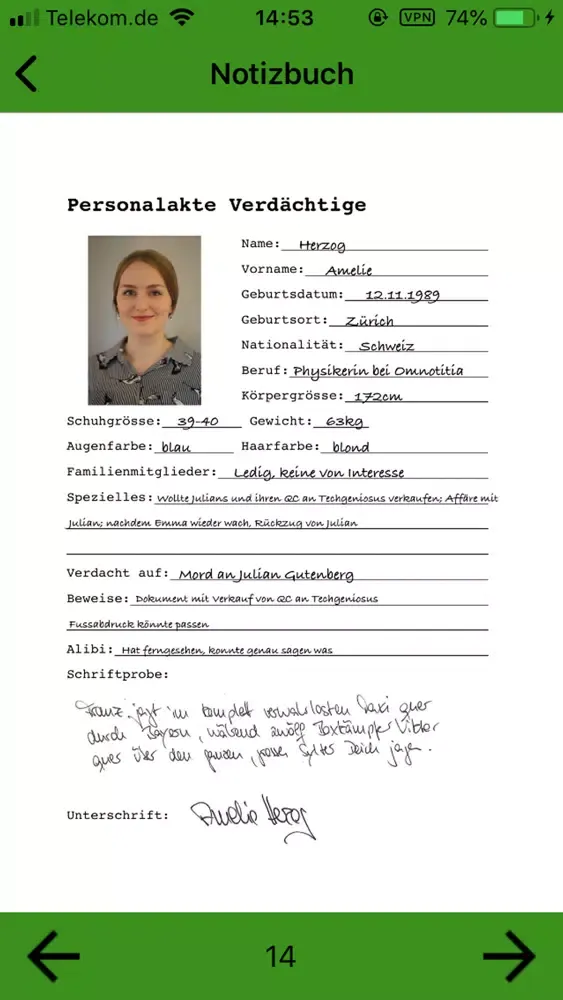 Telekom.de 14:53 VPN 74%
Notizbuch
Personalakte Verdächtige
Name: Herzog
Vorname: Amelie
Geburtsdatum: 12.11.1989
Geburtsort: Zürich
Nationalität: Schweiz
Beruf: Physikerin bei Omnotitia
Körpergrösse: 172cm
Schuhgrösse: 39-40 Gewicht: 63kg
Augenfarbe: blau Haarfarbe: blond
Familienmitglieder: Ledig, keine von Interesse
Spezielles: Wollte Julians und ihren QC an Techgeniosus verkaufen; Affäre mit
Julian; nachdem Emma wieder wach, Rückzug von Julian
Verdacht auf: Mord an Julian Gutenberg
Beweise: Dokument mit Verkauf von QC an Techgeniosus
Fussabdruck könnte passen
Alibi: Hat ferngesehen, konnte genau sagen was
Schriftprobe:
Franz jagt im komplett verwahrlosten Taxi quer
durch Bayern, während zwölf Boxkämpfer Viktor
quer über den ganzen, Sylter Deich jagen.
Unterschrift: Amelie Herzog
14